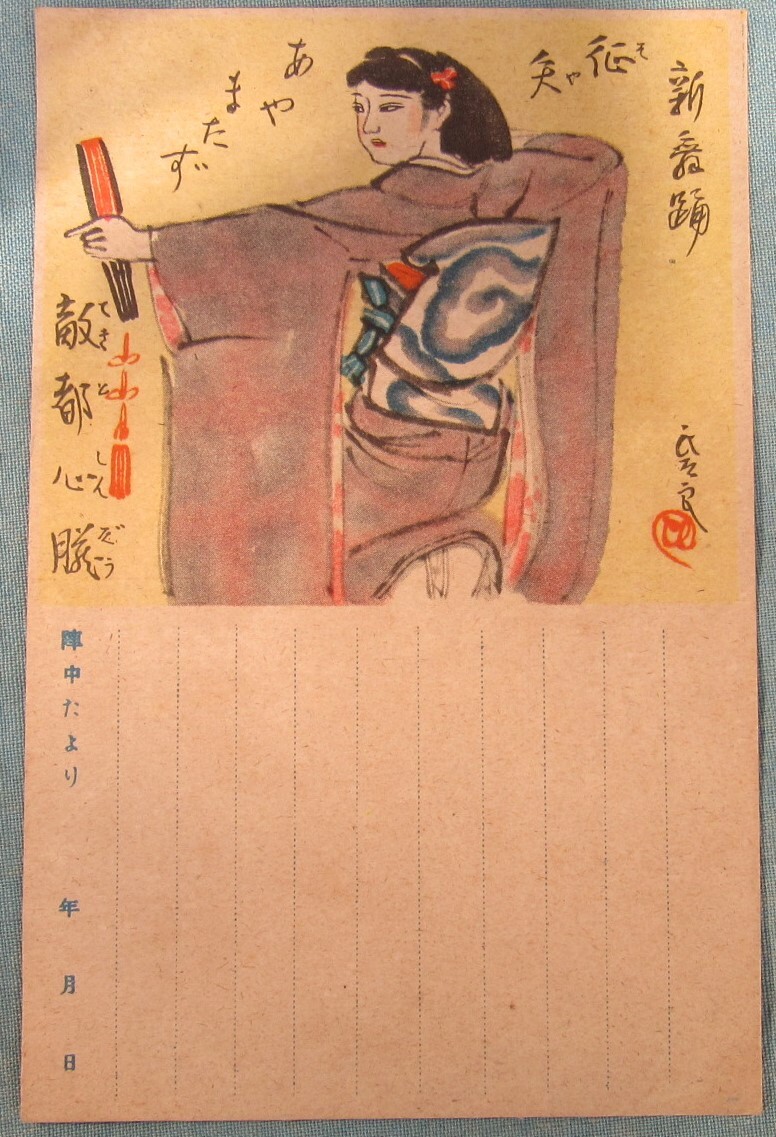 新舞踊
征矢
そや
あや
またず
敵都心臓
てきとしんざう
陣中たより　年　月　日